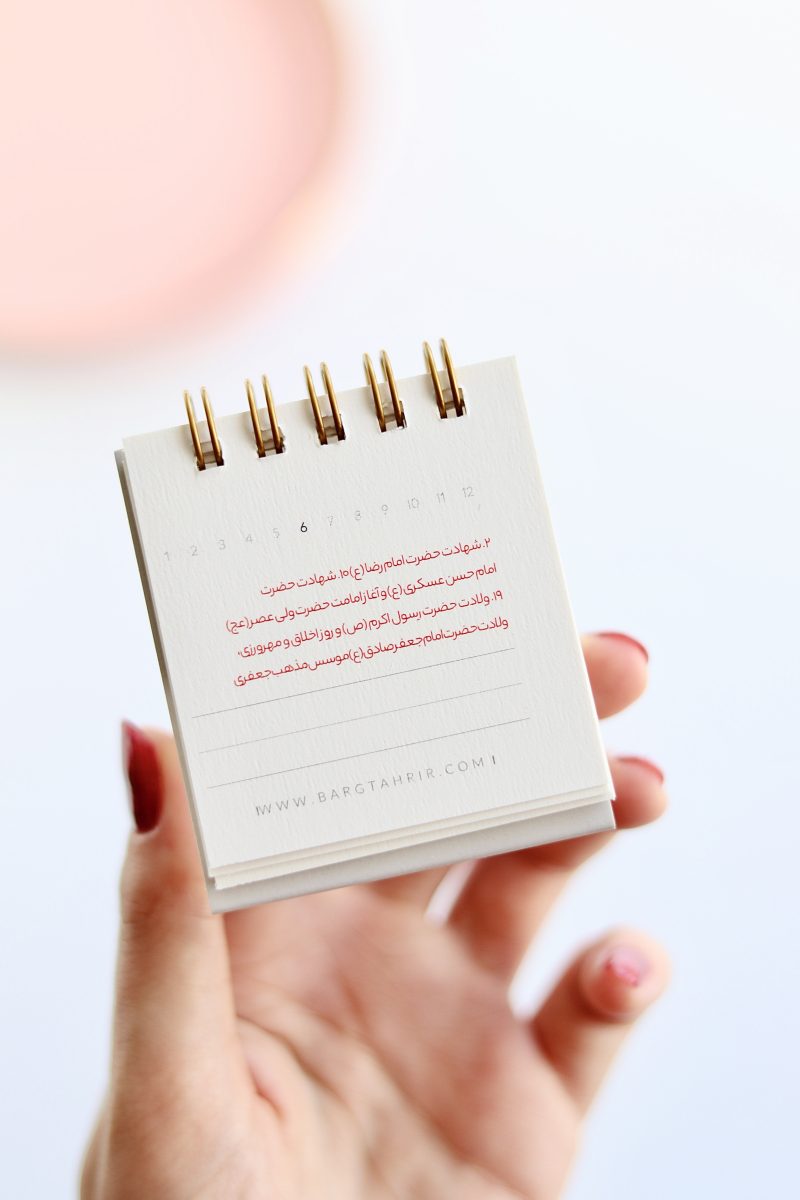 1 2 3 4 5 6 7 8 9 10 11 12
۲. شهادت حضرت امام رضا (ع) ۱۰. شهادت حضرت
امام حسن عسکری (ع) و آغاز امامت حضرت ولی عصر (عج)
۱۹. ولادت حضرت رسول اکرم (ص) و روز اخلاق و مهرورزی،
ولادت حضرت امام جعفر صادق (ع) موسس مذهب جعفری
WWW.BARGTAHRIR.COM